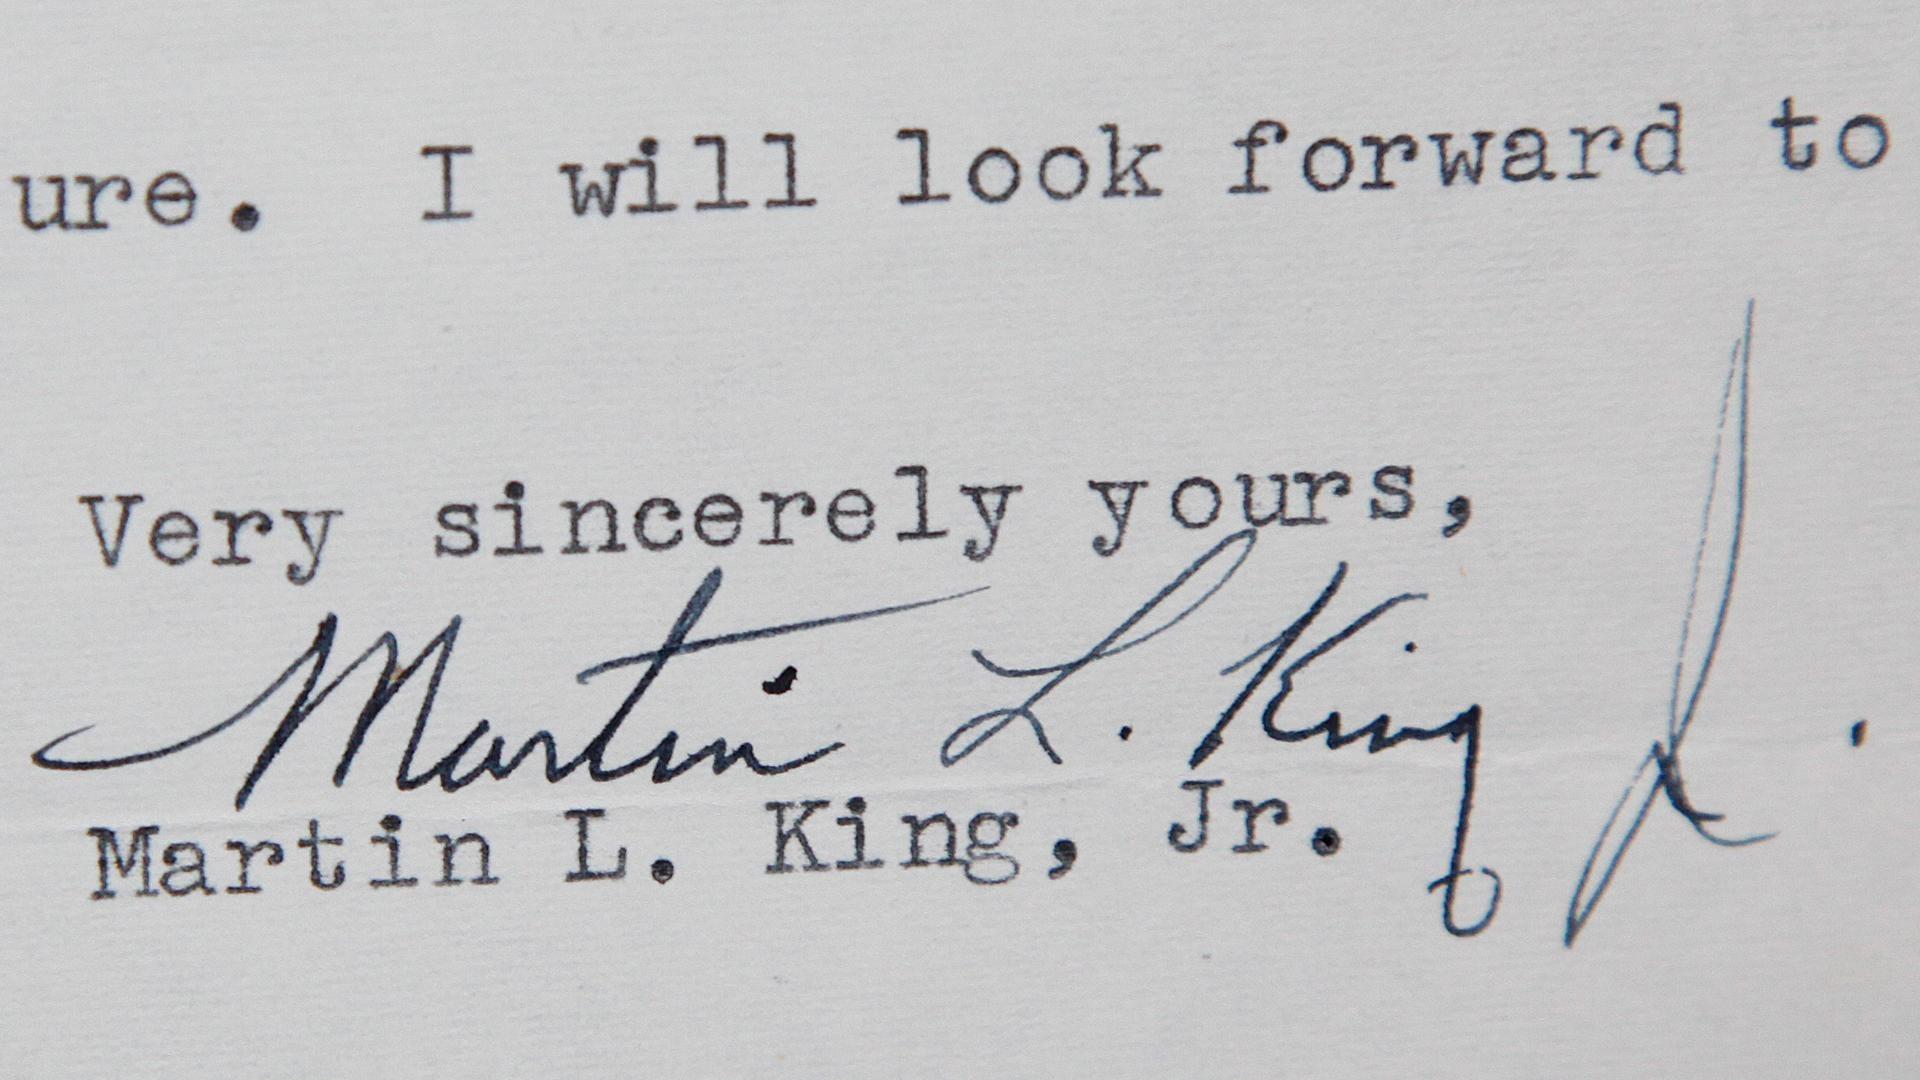 ure.  I will look forward to
Very sincerely yours,
Martin L. King Jr.
Martin L. King, Jr.